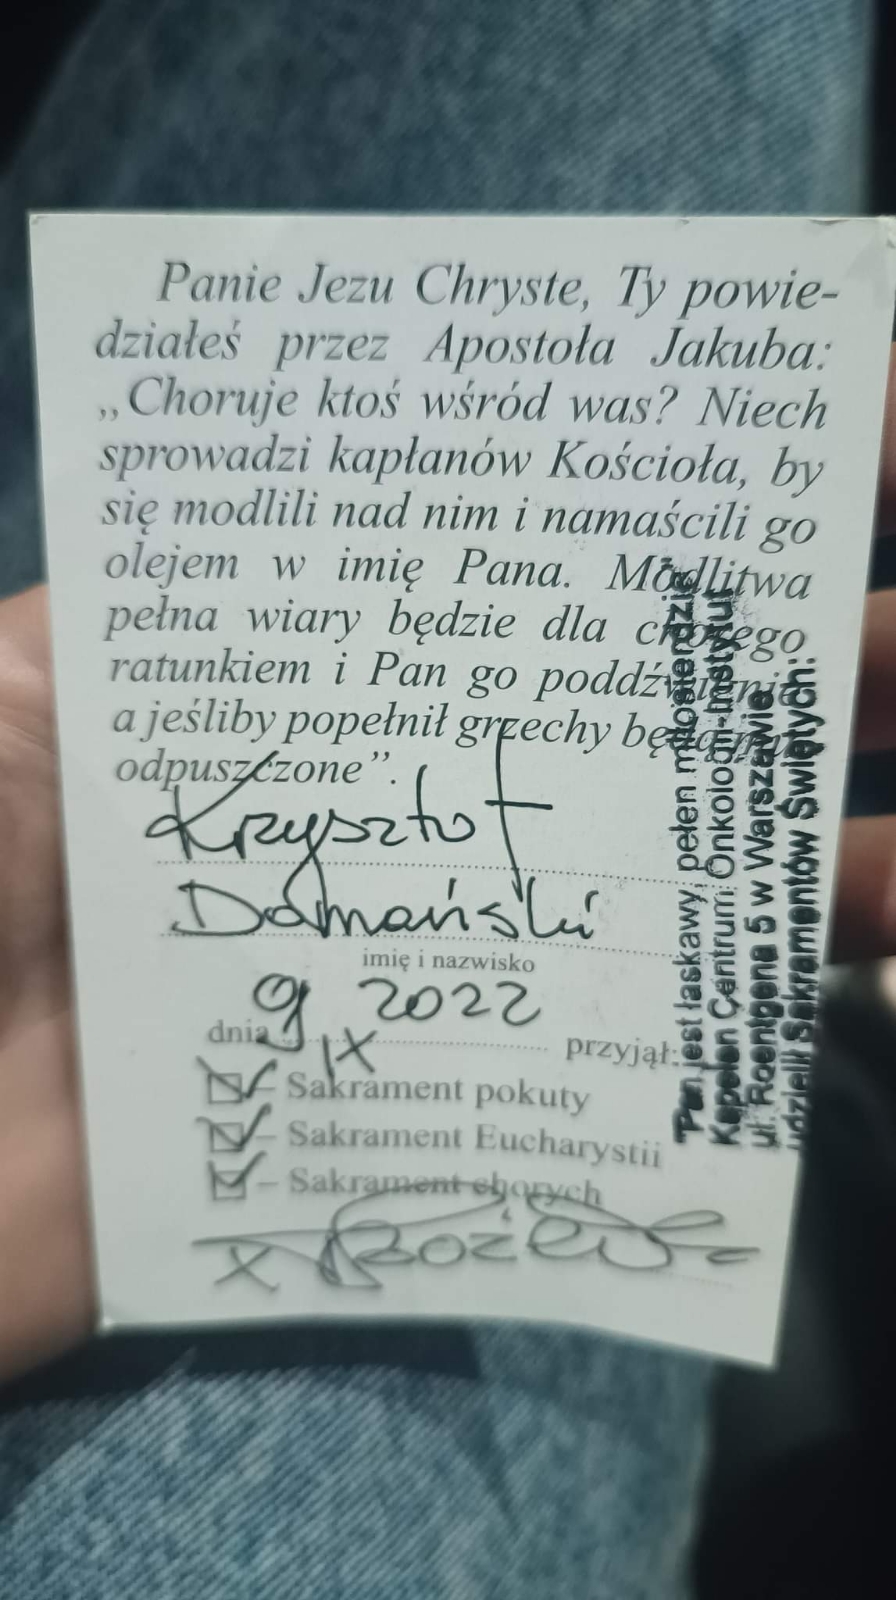 Panie Jezu Chryste, Ty powie-
działeś przez Apostoła Jakuba:
„Choruje ktoś wśród was? Niech
sprowadzi kapłanów Kościoła, by
się modlili nad nim i namaścili go
olejem w imię Pana. Modlitwa
pełna wiary będzie dla chorego
ratunkiem i Pan go poddźwignie,
a jeśliby popełnił grzechy będą mu
odpuszczone”.
Krzysztof
Domański
imię i nazwisko
dnia 9 IX 2022 przyjął:
– Sakrament pokuty
– Sakrament Eucharystii
– Sakrament chorych
Pan jest łaskawy, pełen miłosierdzia
Kapelan Centrum Onkologii-Instytut
ul. Roentgena 5 w Warszawie
udzielił Sakramentów Świętych: